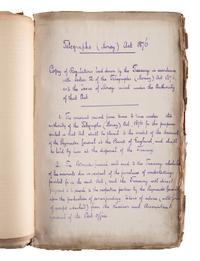 Telegraphs (Money) Act 1876
Copy of Regulations laid down by the Treasury in accordance
with section 2 of the Telegraphs (Money) Act 1876,
as to the issue of money raised under the authority
of that Act.
1. The amount raised from time to time under the
authority of the Telegraphs (Money) Act 1876 for the purposes
stated in that Act shall be placed to the credit of the account of
the Paymaster General at the Bank of England, and shall
be held by him at the disposal of the Treasury.
2. The Postmaster General will send to the Treasury
of the amounts due in respect of the purchase of undertakings
provided for in the said Act, and the Treasury will direct
payment to the respective parties by the Paymaster General
upon the production of corresponding
of the Receiver and Accountant
General of the Post Office.